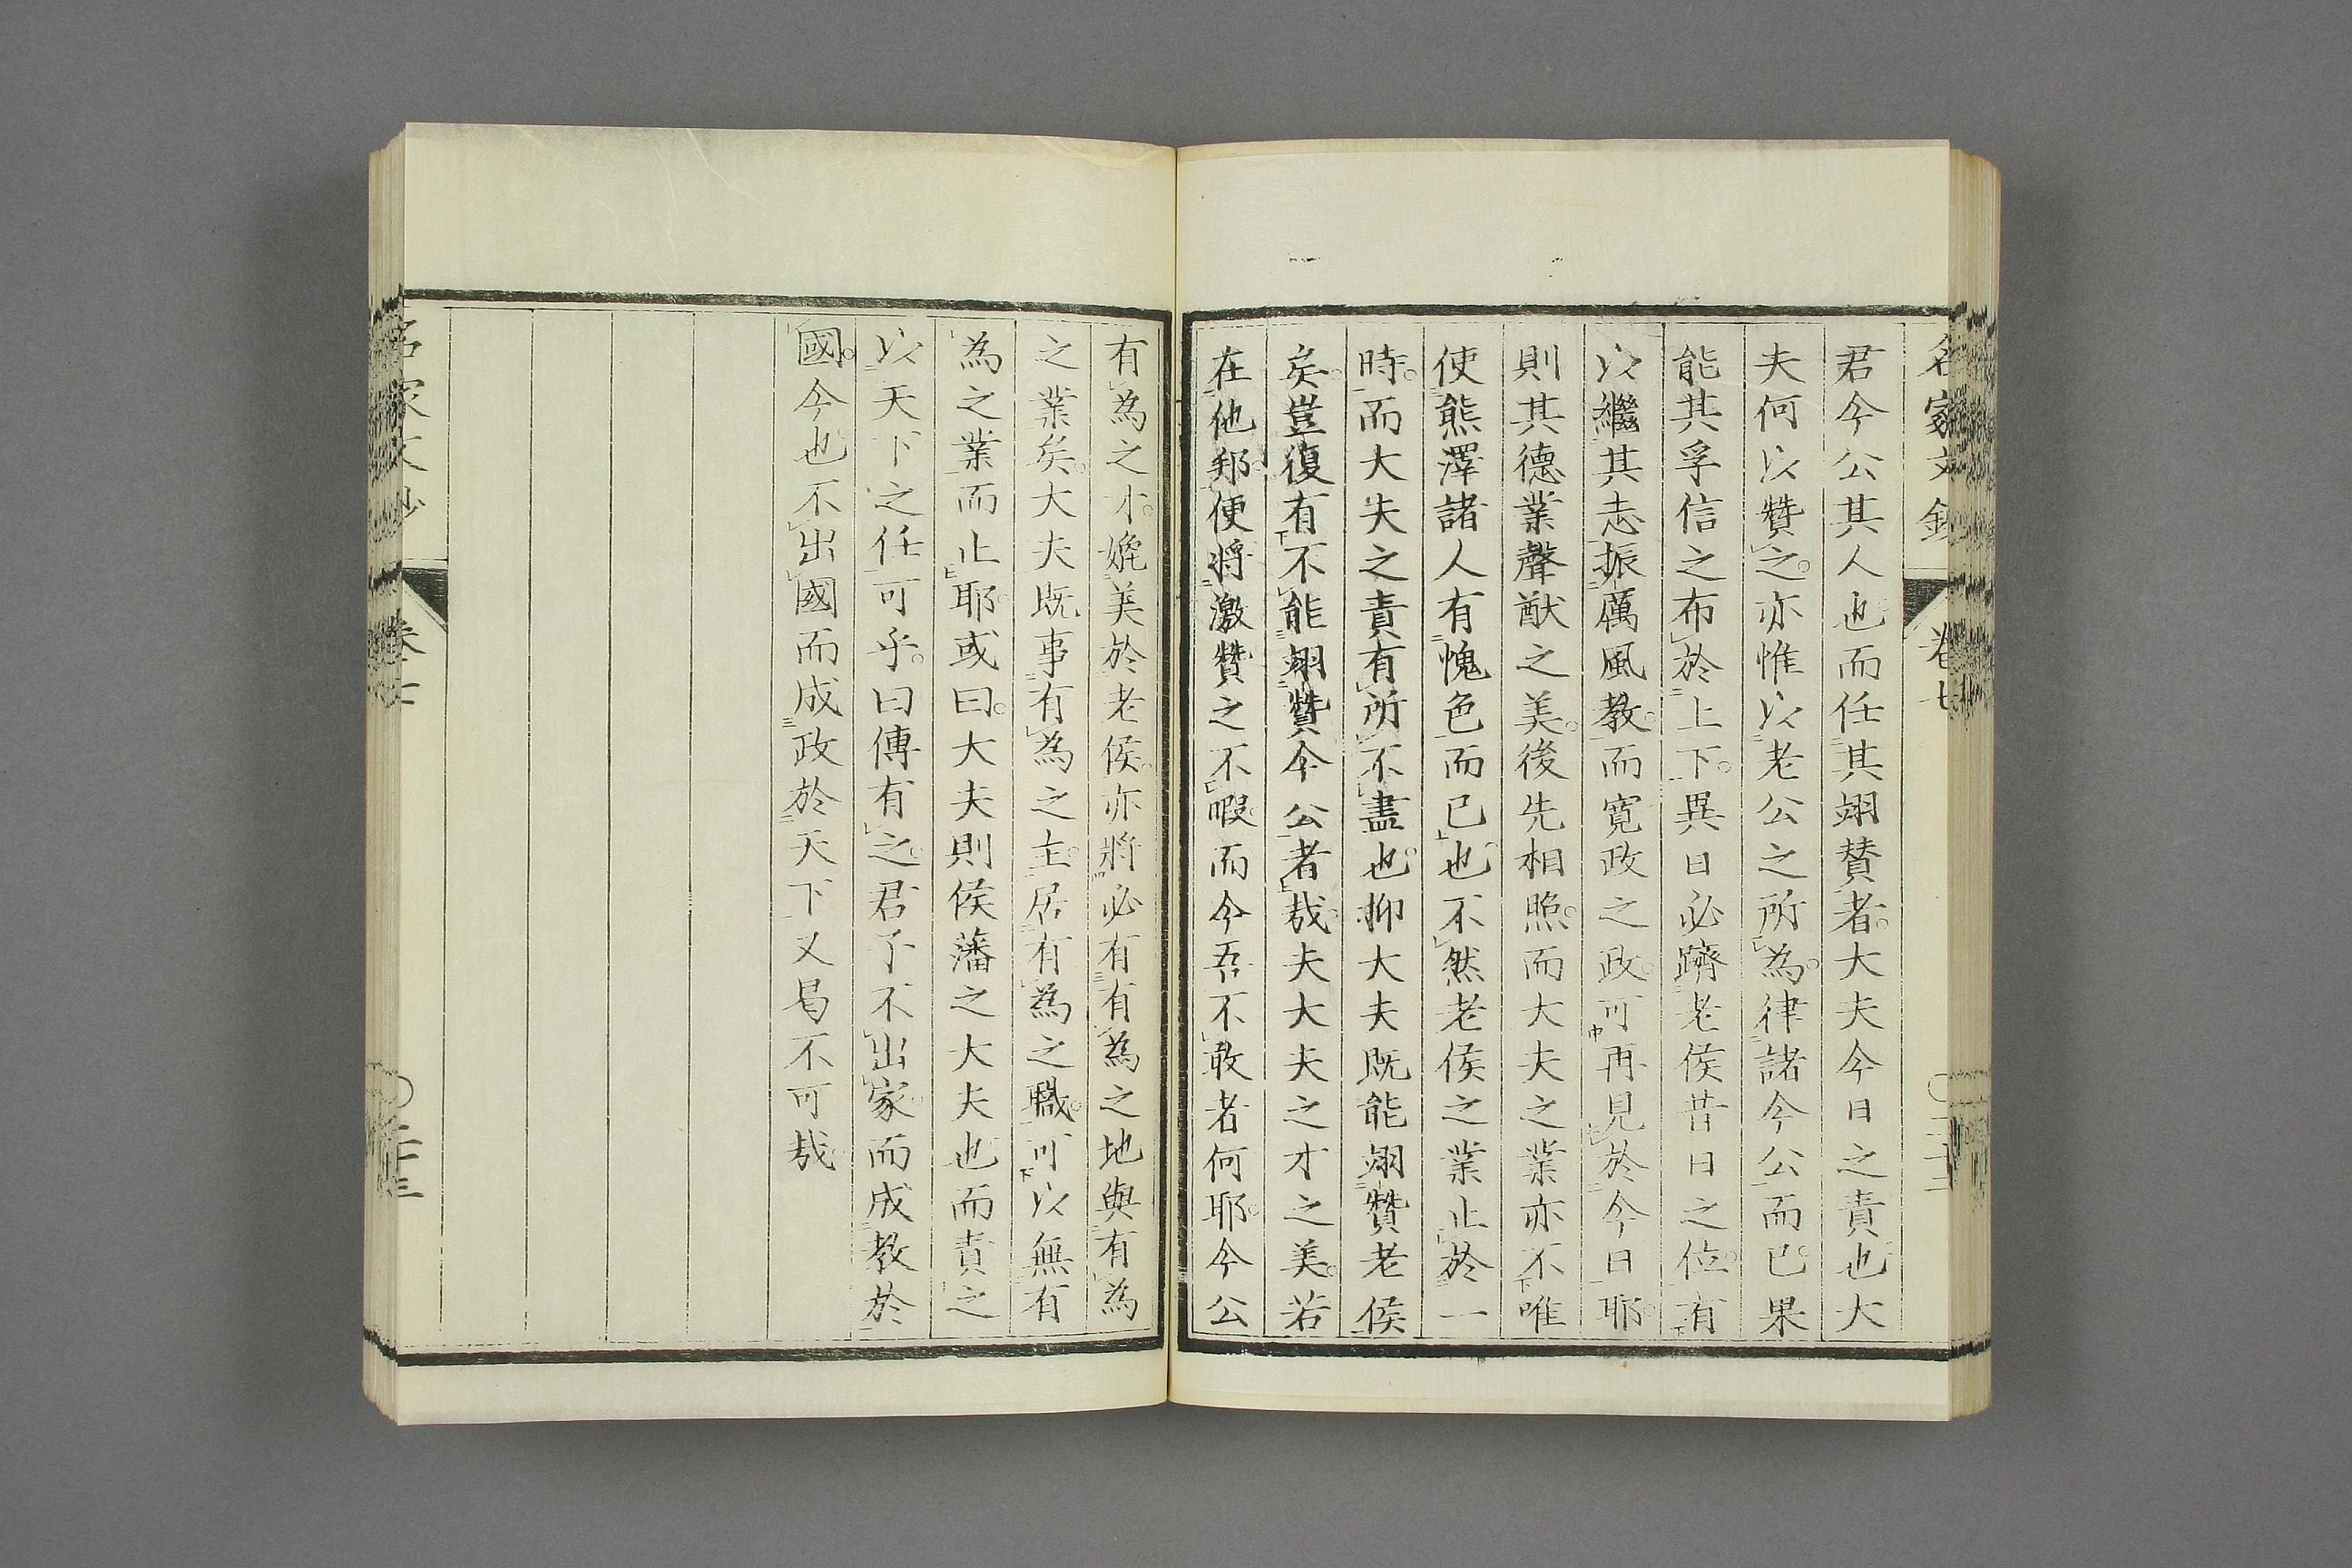 名家文鈔 卷七
君今公其人也而任其翊賛者大夫今日之責也大
夫何以贊之亦惟以老公之所為律諸今公而已果
能其孚信之布於上下異日必躋老侯昔日之位有
以繼其志振厲風教而寛政之政可再見於今日耶
則其德業聲猷之美後先相照而大夫之業亦不唯
使熊澤諸人有愧色而已也不然老侯之業止於一
時而大夫之責有所不盡也抑大夫既能翊贊老侯
矣豈復有不能翊贊今公者哉夫大夫之才之美若
在他邦便將激贊之不暇而今吾不敢者何耶今公
有為之才媲美於老侯亦將必有有為之地與有為
之業矣大夫既事有為之主居有為之職可以無有
為之業而止耶或曰大夫則侯藩之大夫也而責之
以天下之任可乎曰傳有之君子不出家而成教於
國今也不出國而成政於天下又曷不可哉
名家文鈔 卷七